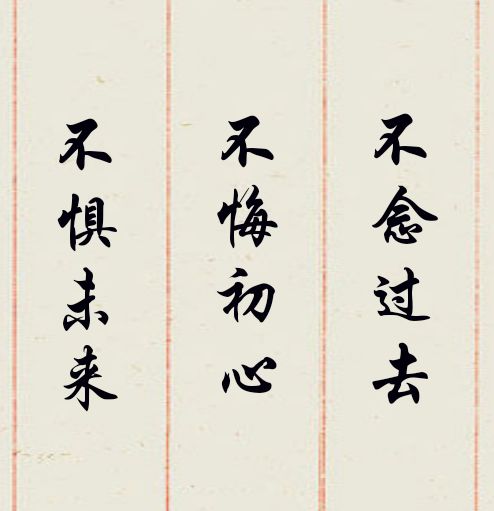 不念过去
不悔初心
不惧未来